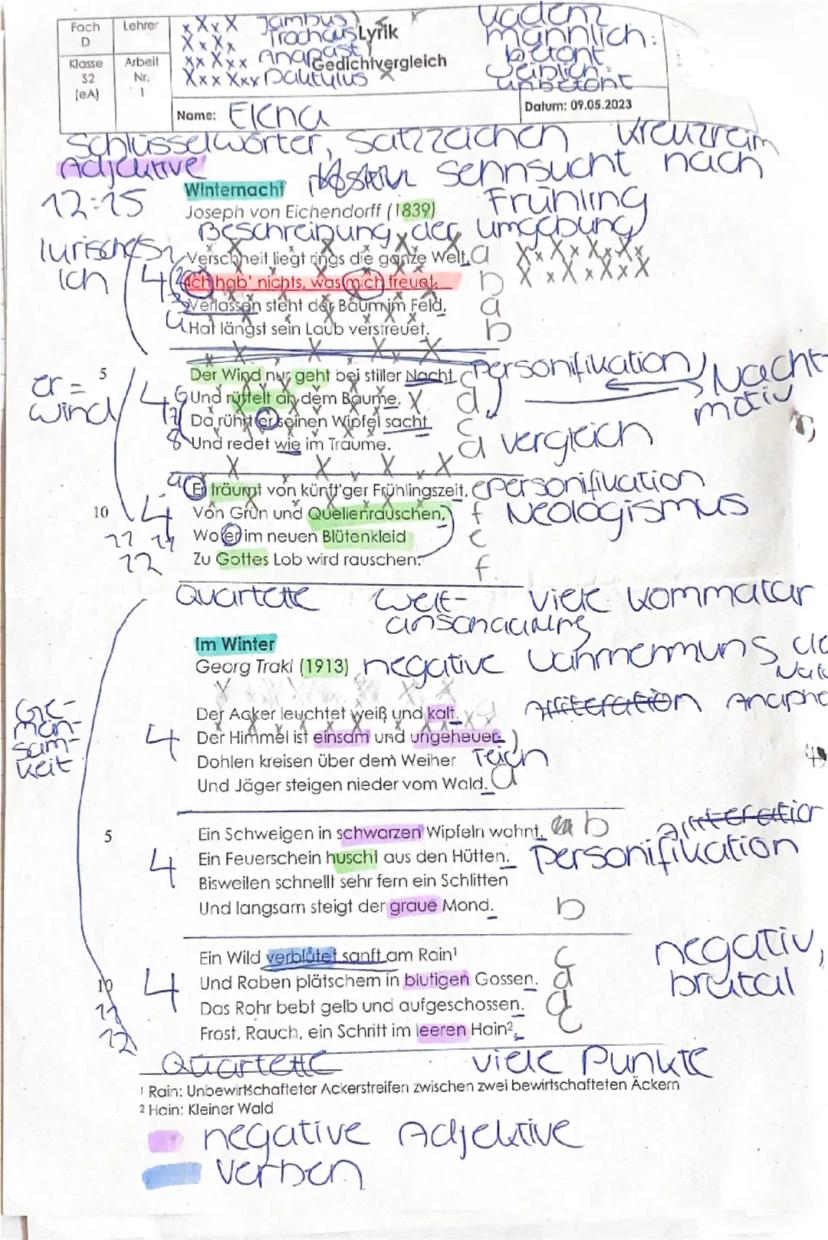 Fach D
Lehrer
Klasse S2 (eA)
Arbeit Nr. 1
xXxX Jambus
XxXx Trochäus
xxXxxX Anapäst
XxxXxx Daktylus
Lyrik
Gedichtvergleich
Kadenz
männlich:
betont
weiblich:
unbetont
Name: Elena
Datum: 09.05.2023
Schlüsselwörter, Satzzeichen Kreuzreim
Adjektive
Sehnsucht nach
Frühling
12:15
Winternacht
Joseph von Eichendorff (1839)
Beschreibung der Umgebung
lyrisches
Ich
Verschneit liegt rings die ganze Welt, a
Ich hab' nichts, was mich freuet, b
Verlassen steht der Baum im Feld, a
Hat längst sein Laub verstreuet. b
4
5 Der Wind nur geht bei stiller Nacht c Personifikation
Und rüttelt an dem Baume, d
Da rührt er seinen Wipfel sacht c
Und redet wie im Traume. d vergleich
Nacht-
motiv
er =
wind
4
Er träumt von künft'ger Frühlingszeit, e Personifikation
10 Von Grün und Quellenrauschen, f Neologismus
11 Wo er im neuen Blütenkleid e
12 Zu Gottes Lob wird rauschen. f
4
Quartette Welt- viele Kommatar
anschauung
Im Winter
Georg Trakl (1913) negative
Ge-
mein-
sam-
keit
Der Acker leuchtet weiß und kalt. Alliteration
Der Himmel ist einsam und ungeheuer.
Dohlen kreisen über dem Weiher Teich
Und Jäger steigen nieder vom Wald. a
4
5 Ein Schweigen in schwarzen Wipfeln wohnt. b
Ein Feuerschein huscht aus den Hütten. Personifikation
Bisweilen schnellt sehr fern ein Schlitten
Und langsam steigt der graue Mond. b
4
Ein Wild verblutet sanft am Rain¹ c
10 Und Raben plätschern in blutigen Gossen. d
11 Das Rohr bebt gelb und aufgeschossen. d
12 Frost, Rauch, ein Schritt im leeren Hain². c
4
negativ,
brutal
Quartette viele Punkte
¹ Rain: Unbewirtschafteter Ackerstreifen zwischen zwei bewirtschafteten Äckern
² Hain: Kleiner Wald
negative Adjektive
verben